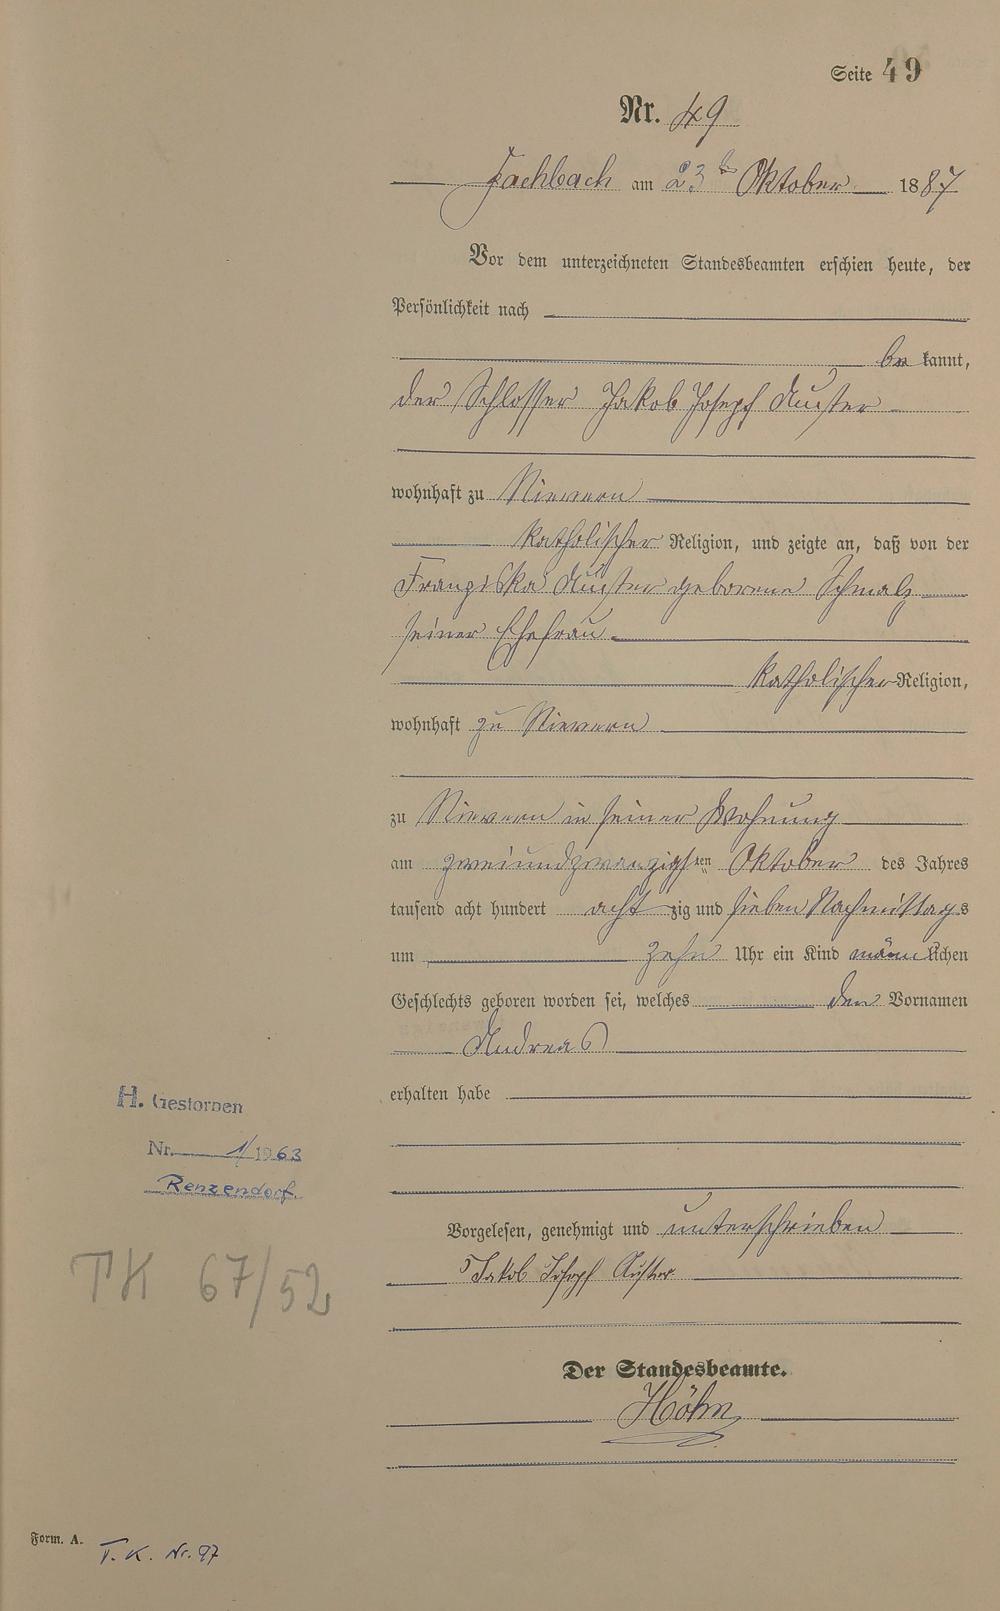 Seite 49
Nr. 49
Fachbach am 23ten Oktober 1887
Vor dem unterzeichneten Standesbeamten erschien heute, der
Persönlichkeit nach
be kannt,
der Schlosser Jakob Joseph Auster
wohnhaft zu Nievern
katholischer Religion, und zeigte an, daß von der
Franziska Auster geborene Schmalz
seiner Ehefrau
katholischer Religion,
wohnhaft zu Nievern
zu Nievern in seiner Wohnung
am zweiundzwanzigsten Oktober des Jahres
tausend acht hundert acht zig und sieben Nachmittags
um zehn Uhr ein Kind männlichen
Geschlechts geboren worden sei, welches den Vornamen
Andreas
erhalten habe
H. Gestorben
Nr. 1/1963
Renzendorf.
Vorgelesen, genehmigt und unterschrieben
Jakob Josepf Auster
TK 67/52
Der Standesbeamte.
Höhn
Form. A.
T. K. Nr. 97